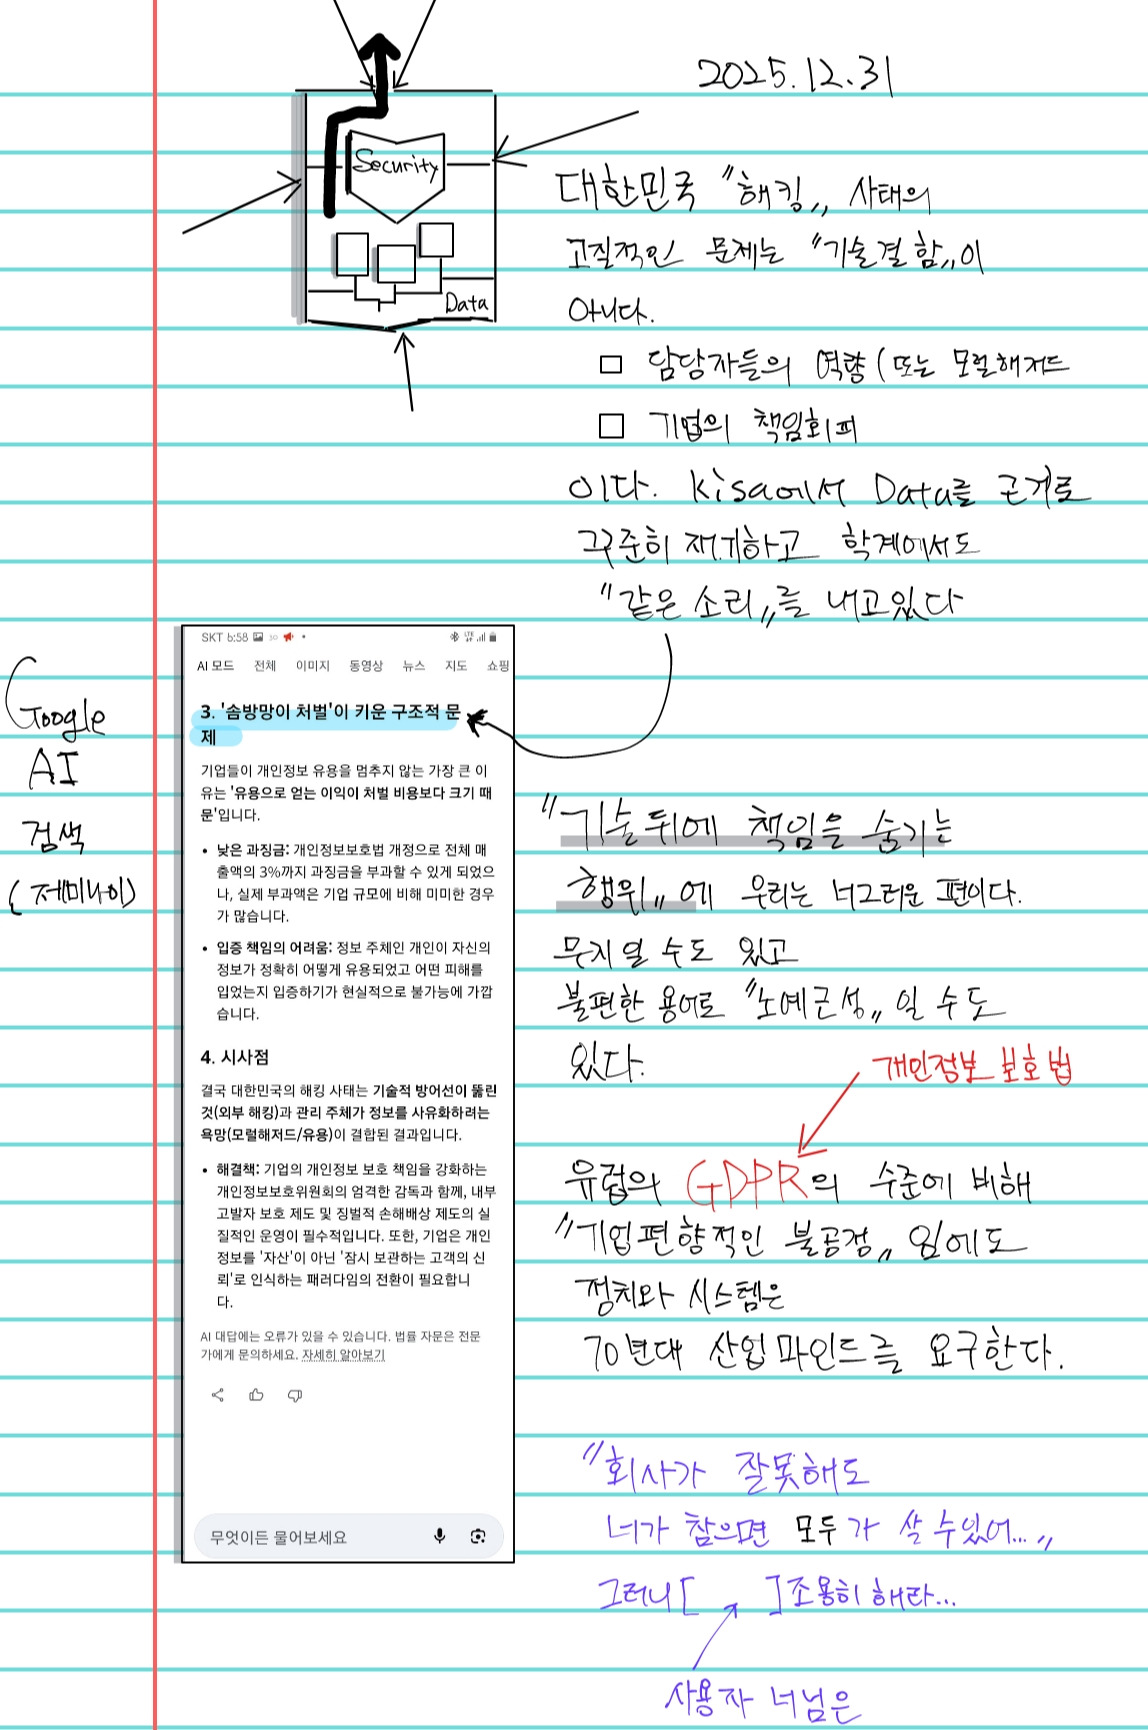 2025.12.31
Security
Data
대한민국 "해킹" 사태의
고질적인 문제는 "기술결함"이
아니다.
□ 담당자들의 역량 (또는 모럴해저드
□ 기업의 책임회피
이다. Kisa에서 Data를 근거로
꾸준히 제기하고 학계에서도
"같은 소리"를 내고있다
Google
AI
검색
(제미나이)
SKT 6:58
AI 모드 전체 이미지 동영상 뉴스 지도 쇼핑
3. '솜방망이 처벌'이 키운 구조적 문
제
기업들이 개인정보 유용을 멈추지 않는 가장 큰 이
유는 '유용으로 얻는 이익이 처벌 비용보다 크기 때
문'입니다.
• 낮은 과징금: 개인정보보호법 개정으로 전체 매
출액의 3%까지 과징금을 부과할 수 있게 되었으
나, 실제 부과액은 기업 규모에 비해 미미한 경우
가 많습니다.
• 입증 책임의 어려움: 정보 주체인 개인이 자신의
정보가 정확히 어떻게 유용되었고 어떤 피해를
입었는지 입증하기가 현실적으로 불가능에 가깝
습니다.
4. 시사점
결국 대한민국의 해킹 사태는 기술적 방어선이 뚫린
것(외부 해킹)과 관리 주체가 정보를 사유화하려는
욕망(모럴해저드/유용)이 결합된 결과입니다.
• 해결책: 기업의 개인정보 보호 책임을 강화하는
개인정보보호위원회의 엄격한 감독과 함께, 내부
고발자 보호 제도 및 징벌적 손해배상 제도의 실
질적인 운영이 필수적입니다. 또한, 기업은 개인
정보를 '자산'이 아닌 '잠시 보관하는 고객의 신
뢰'로 인식하는 패러다임의 전환이 필요합니
다.
AI 대답에는 오류가 있을 수 있습니다. 법률 자문은 전문
가에게 문의하세요. 자세히 알아보기
무엇이든 물어보세요
"기술 뒤에 책임을 숨기는
행위"에 우리는 너그러운 편이다.
무지일 수도 있고
불편한 용어로 "노예근성"일 수도
있다.
개인정보 보호법
유럽의 GDPR의 수준에 비해
"기업편향적인 불공정"임에도
정치와 시스템은
70년대 산업마인드를 요구한다.
"회사가 잘못해도
너가 참으면 모두가 살 수있어..."
그러니 [ ] 조용히 해라...
사용자 너님은